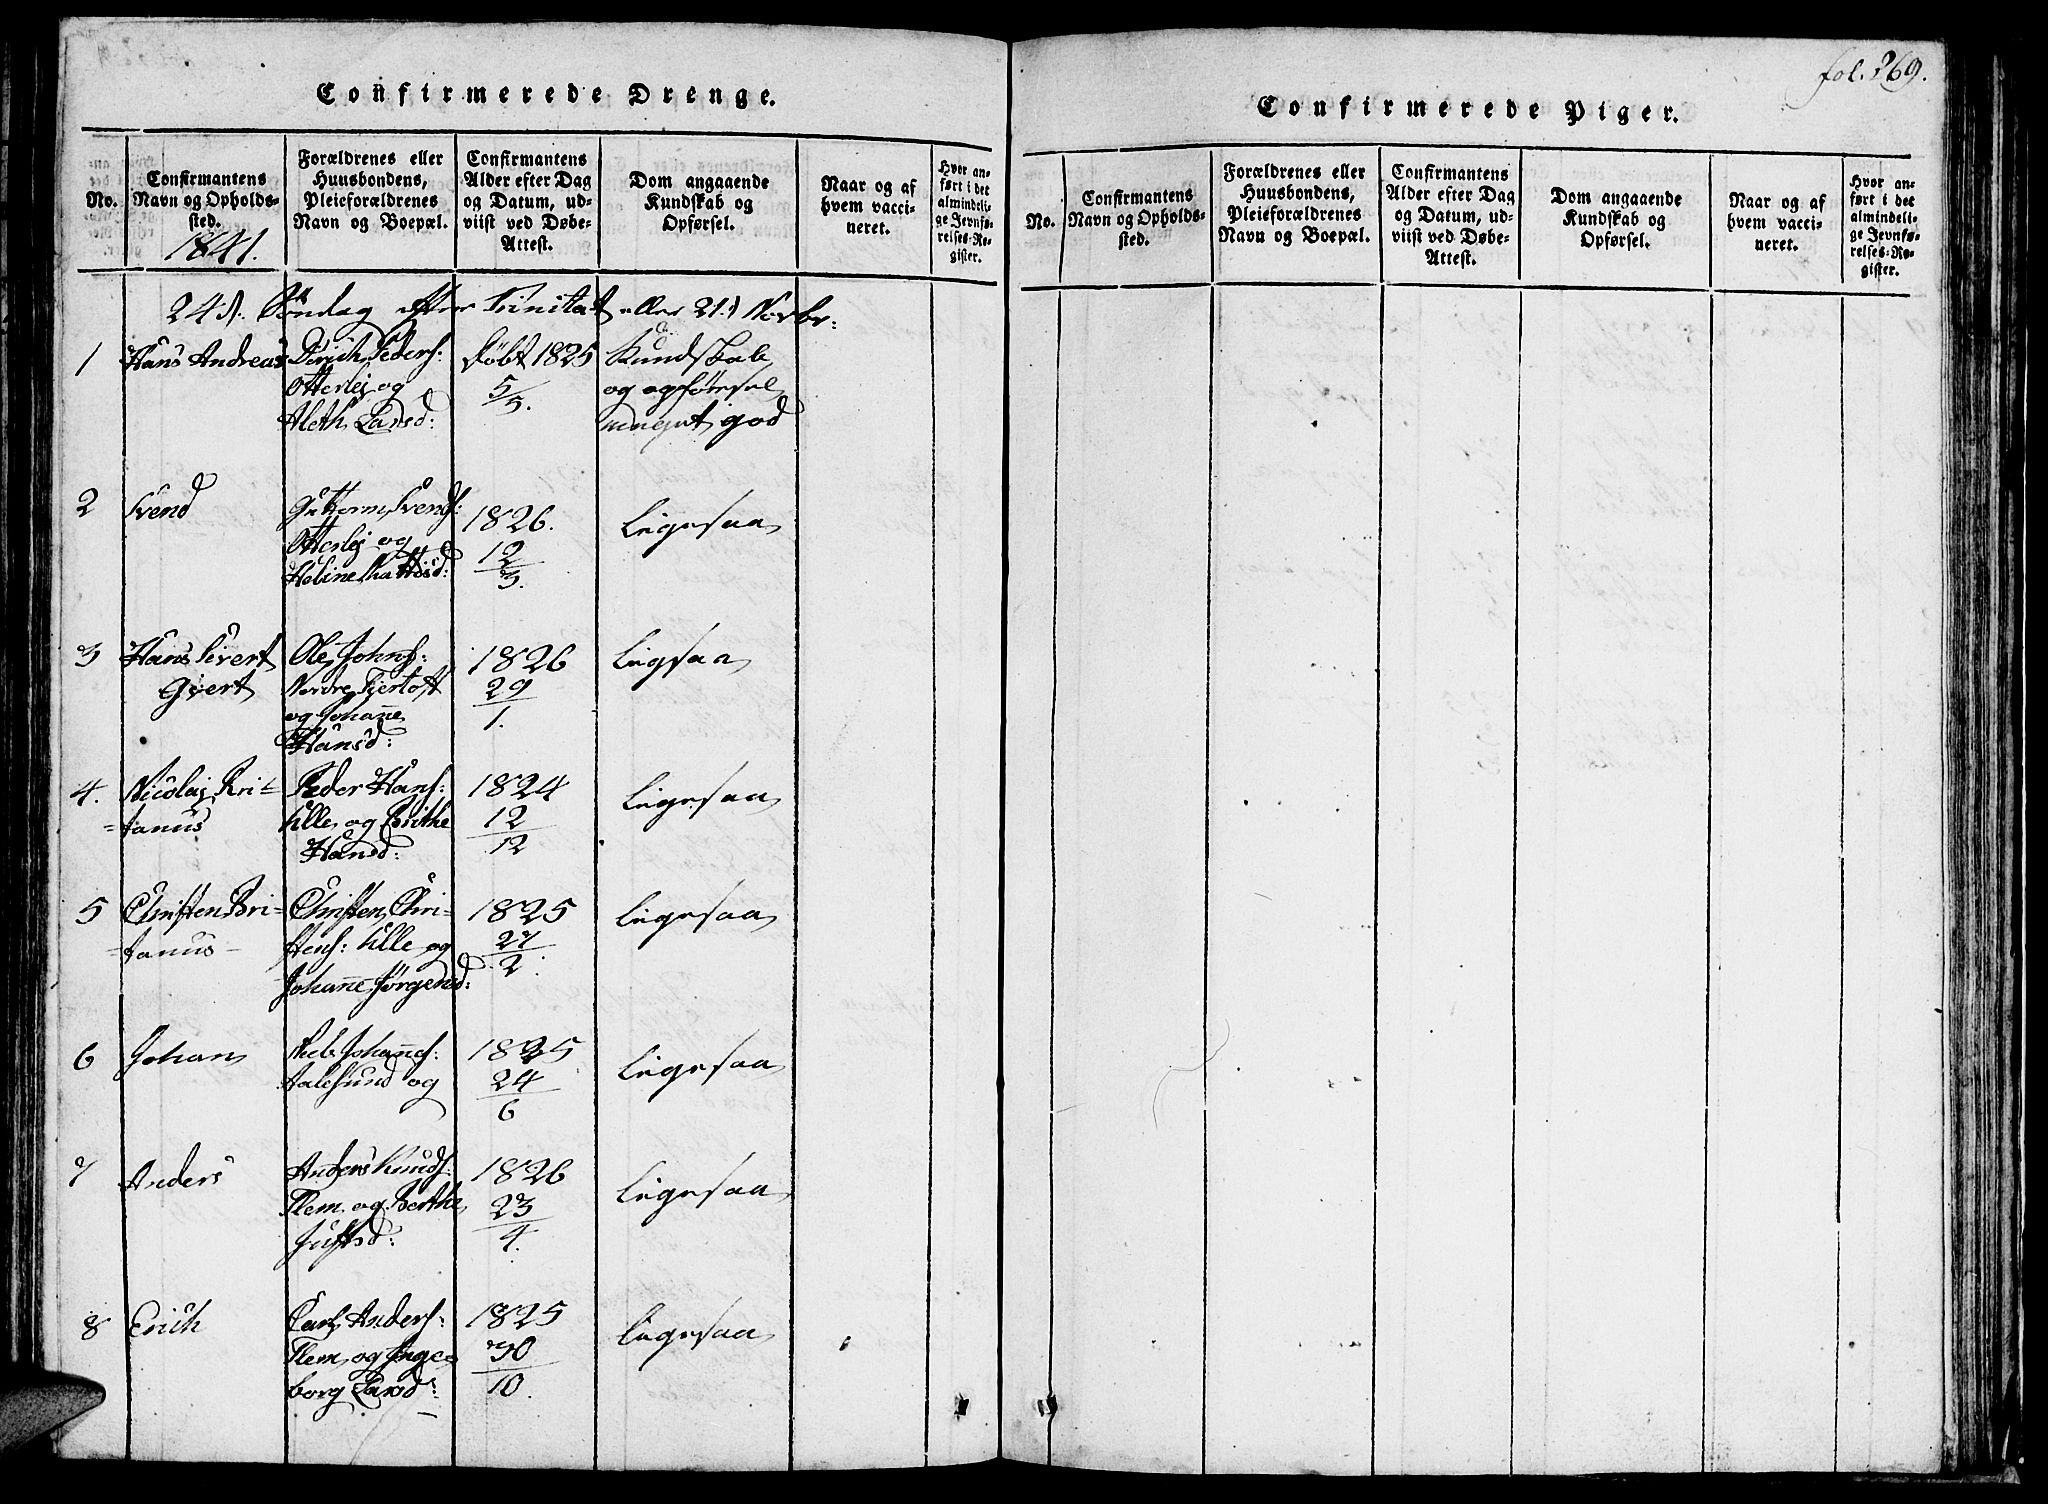 Confirmerede Drenge.
No.
Confirmantens
Navn og Opholds-
sted.
1841.
Forældrenes eller
Huusbondens,
Pleieforældrenes
Navn og Boepæl.
Confirmantens
Alder efter Dag
og Datum, ud-
viist ved Døbe-
Attest.
Dom angaaende
Kundskab og
Opførsel.
Naar og af
hvem vacci-
neret.
Hvor an-
ført i det
almindeli-
ge Jevnfø-
relses-Re-
gister.
24d: Søndag efter Trinitat eller 21d Novbr:
1
Hans Andreas
Dirich Peders:
Otterlej og
Aleth Larsd:
døbt 1825
5/5.
Kundskab
og opførsel
meget god
2
Svend
Guttorm Svends:
Otterlej og
Heline Matthisd:
1826.
12
3.
Ligesaa
3
Hans Sivert
Gjert
Ole Johns:
Nordre Fjertoft
og Johanne
Hansd:
1826
29
1.
Ligesaa
4.
Nicolaj Bri=
=tanus
Peder Hans:
Ulle og Brithe
Hansd:
1824
12
12
Ligesaa
5
Christen Bri=
=tanus
Christen Chri-
stens: Ulle og
Johanne Jørgensd:
1825
27
2.
Ligesaa
6
Johan
Johans:
Aalesund og
1825
24
6
Ligesaa
7
Anders
Anders Knuds:
Flem og Berthe
Justsd:
1826
23
4.
Ligesaa
8
Erich
Carl Anders:
Flem og Inge=
borg Larsd:
1825
30
10.
Ligesaa
fol. 269.
Confirmerede Piger.
No.
Confirmantens
Navn og Opholds-
sted.
Forældrenes eller
Huusbondens,
Pleieforældrenes
Navn og Boepæl.
Confirmantens
Alder efter Dag
og Datum, ud-
viist ved Døbe-
Attest.
Dom angaaende
Kundskab og
Opførsel.
Naar og af
hvem vacci-
neret.
Hvor an-
ført i det
almindeli-
ge Jevnfø-
relses-Re-
gister.